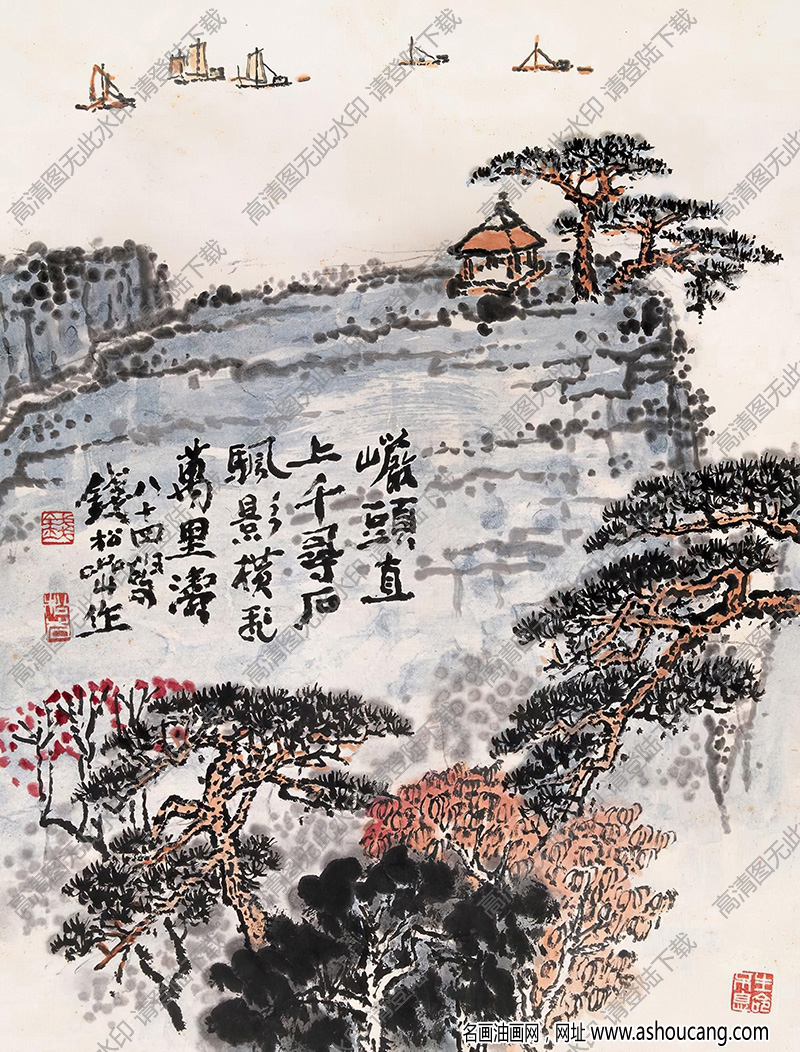 巖頭直
上千尋石
颿影橫飛
萬里濤
八十四叟
錢松嵒作
錢
生命不息
高清图无此水印 请登陆下载
名画油画网，网址 www.ashoucang.com